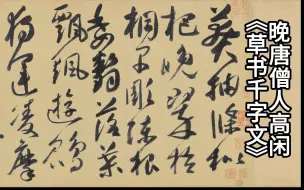 晚唐僧人高闲
《草书千字文》
莽抽條枇
杷晚翠梧
桐早彫陳根
委翳落葉
飄颻遊鵾
獨運凌摩